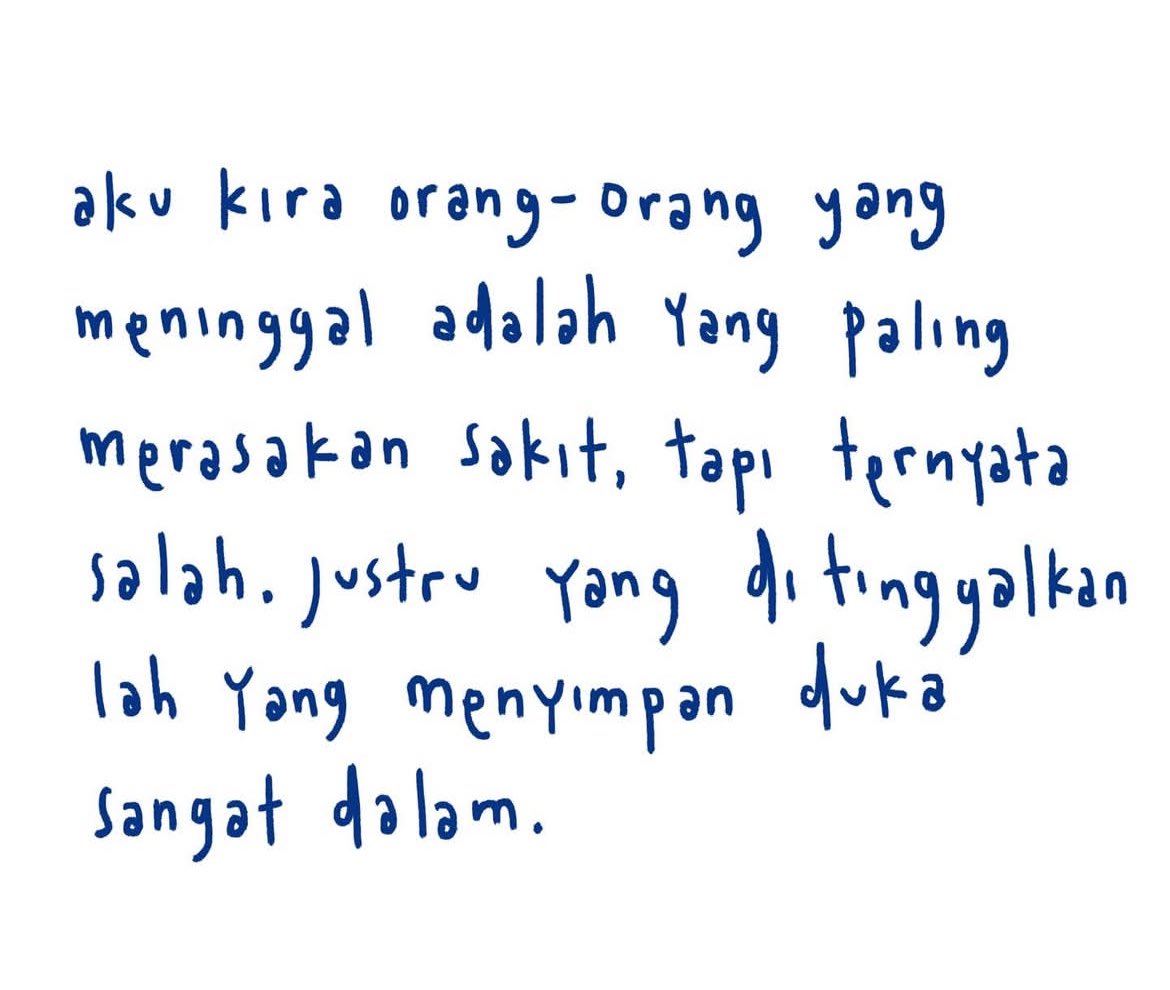 aku kira orang-orang yang
meninggal adalah yang paling
merasakan sakit, tapi ternyata
salah. justru yang ditinggalkan
lah yang menyimpan duka
sangat dalam.